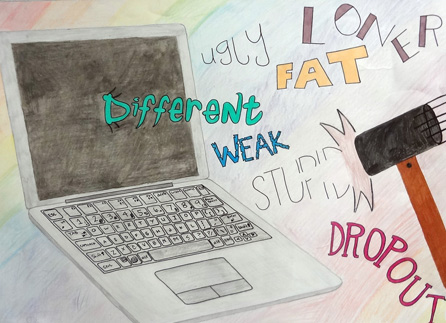 ugly
LONER
FAT
Different
WEAK
STUPID
DROPOUT